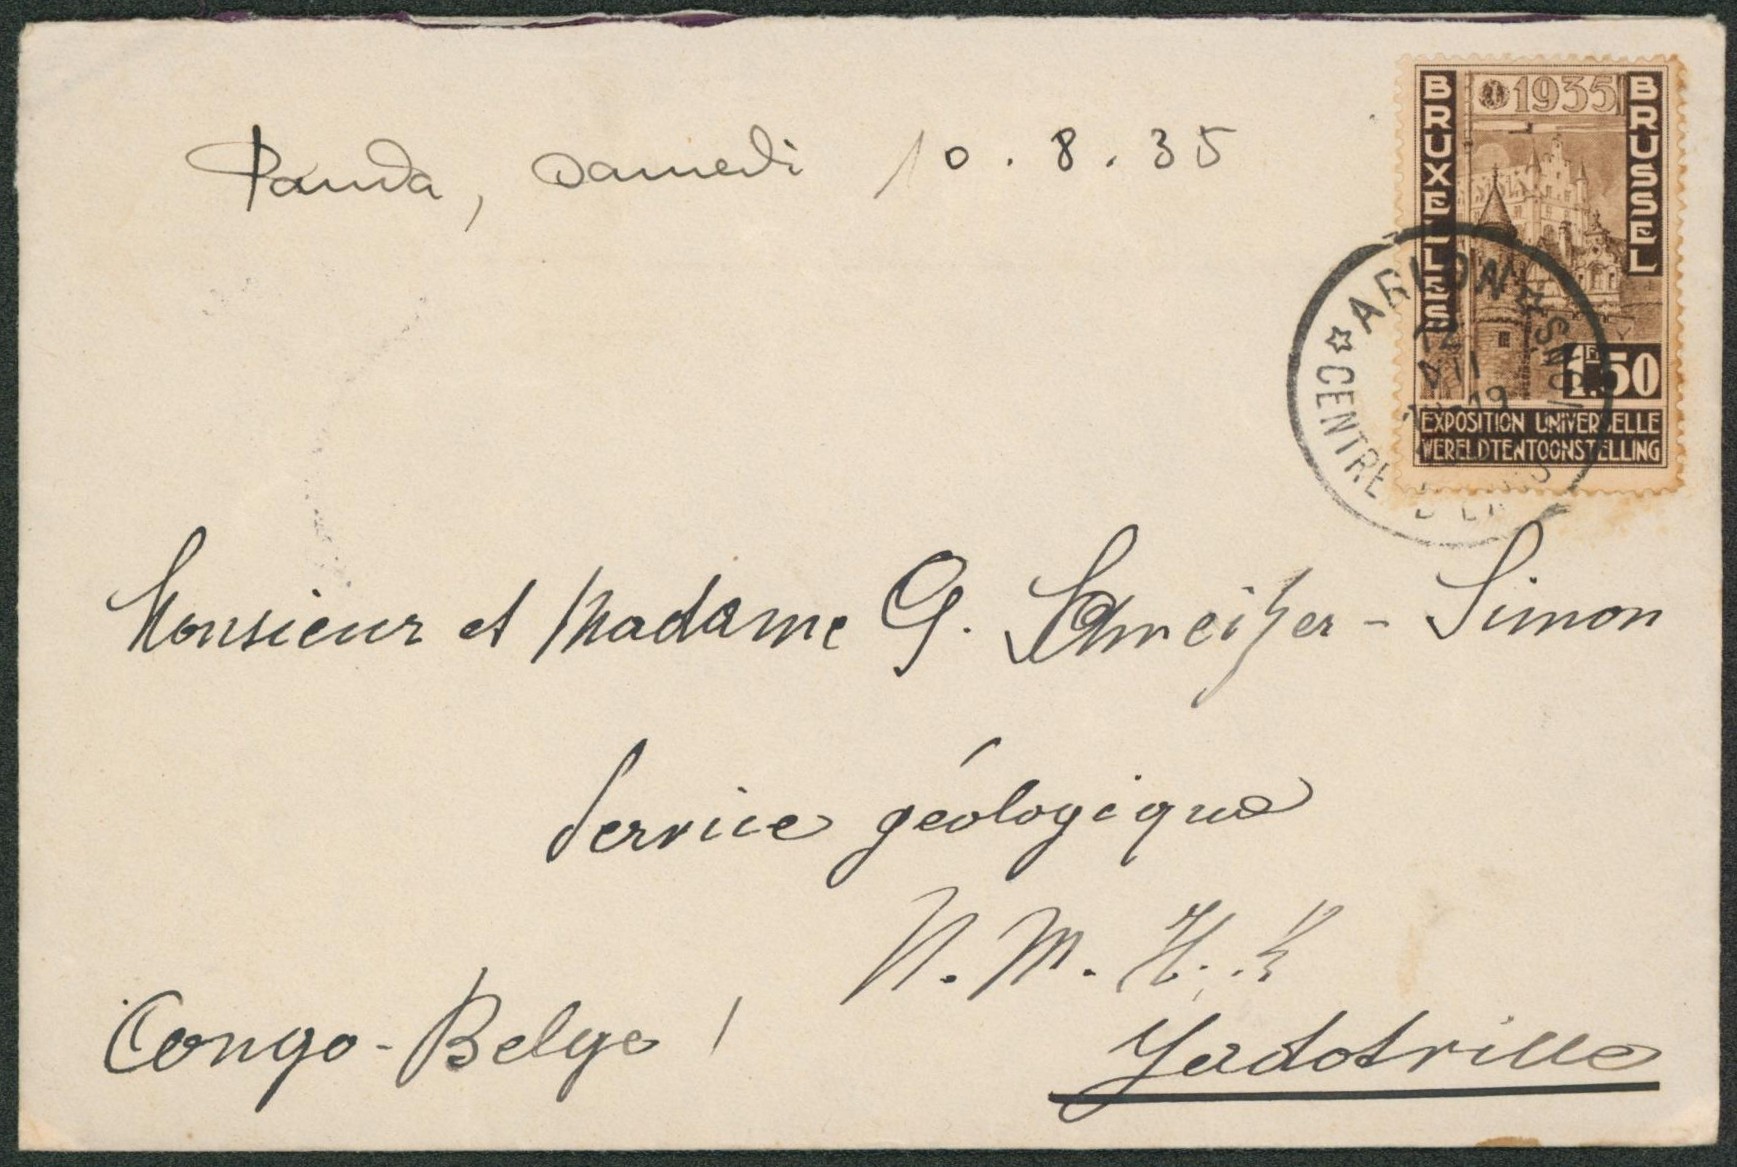 Panda, samedi 10.8.35
1935
BRUXELLES
BRUSSEL
1Fr50
EXPOSITION UNIVERSELLE
WERELDTENTOONSTELLING
ARLON
12
VII
-19
CENTRE
Monsieur et Madame G. Schweitzer - Simon
Service géologique
U. M. H. K
Congo-Belge
Jadotville